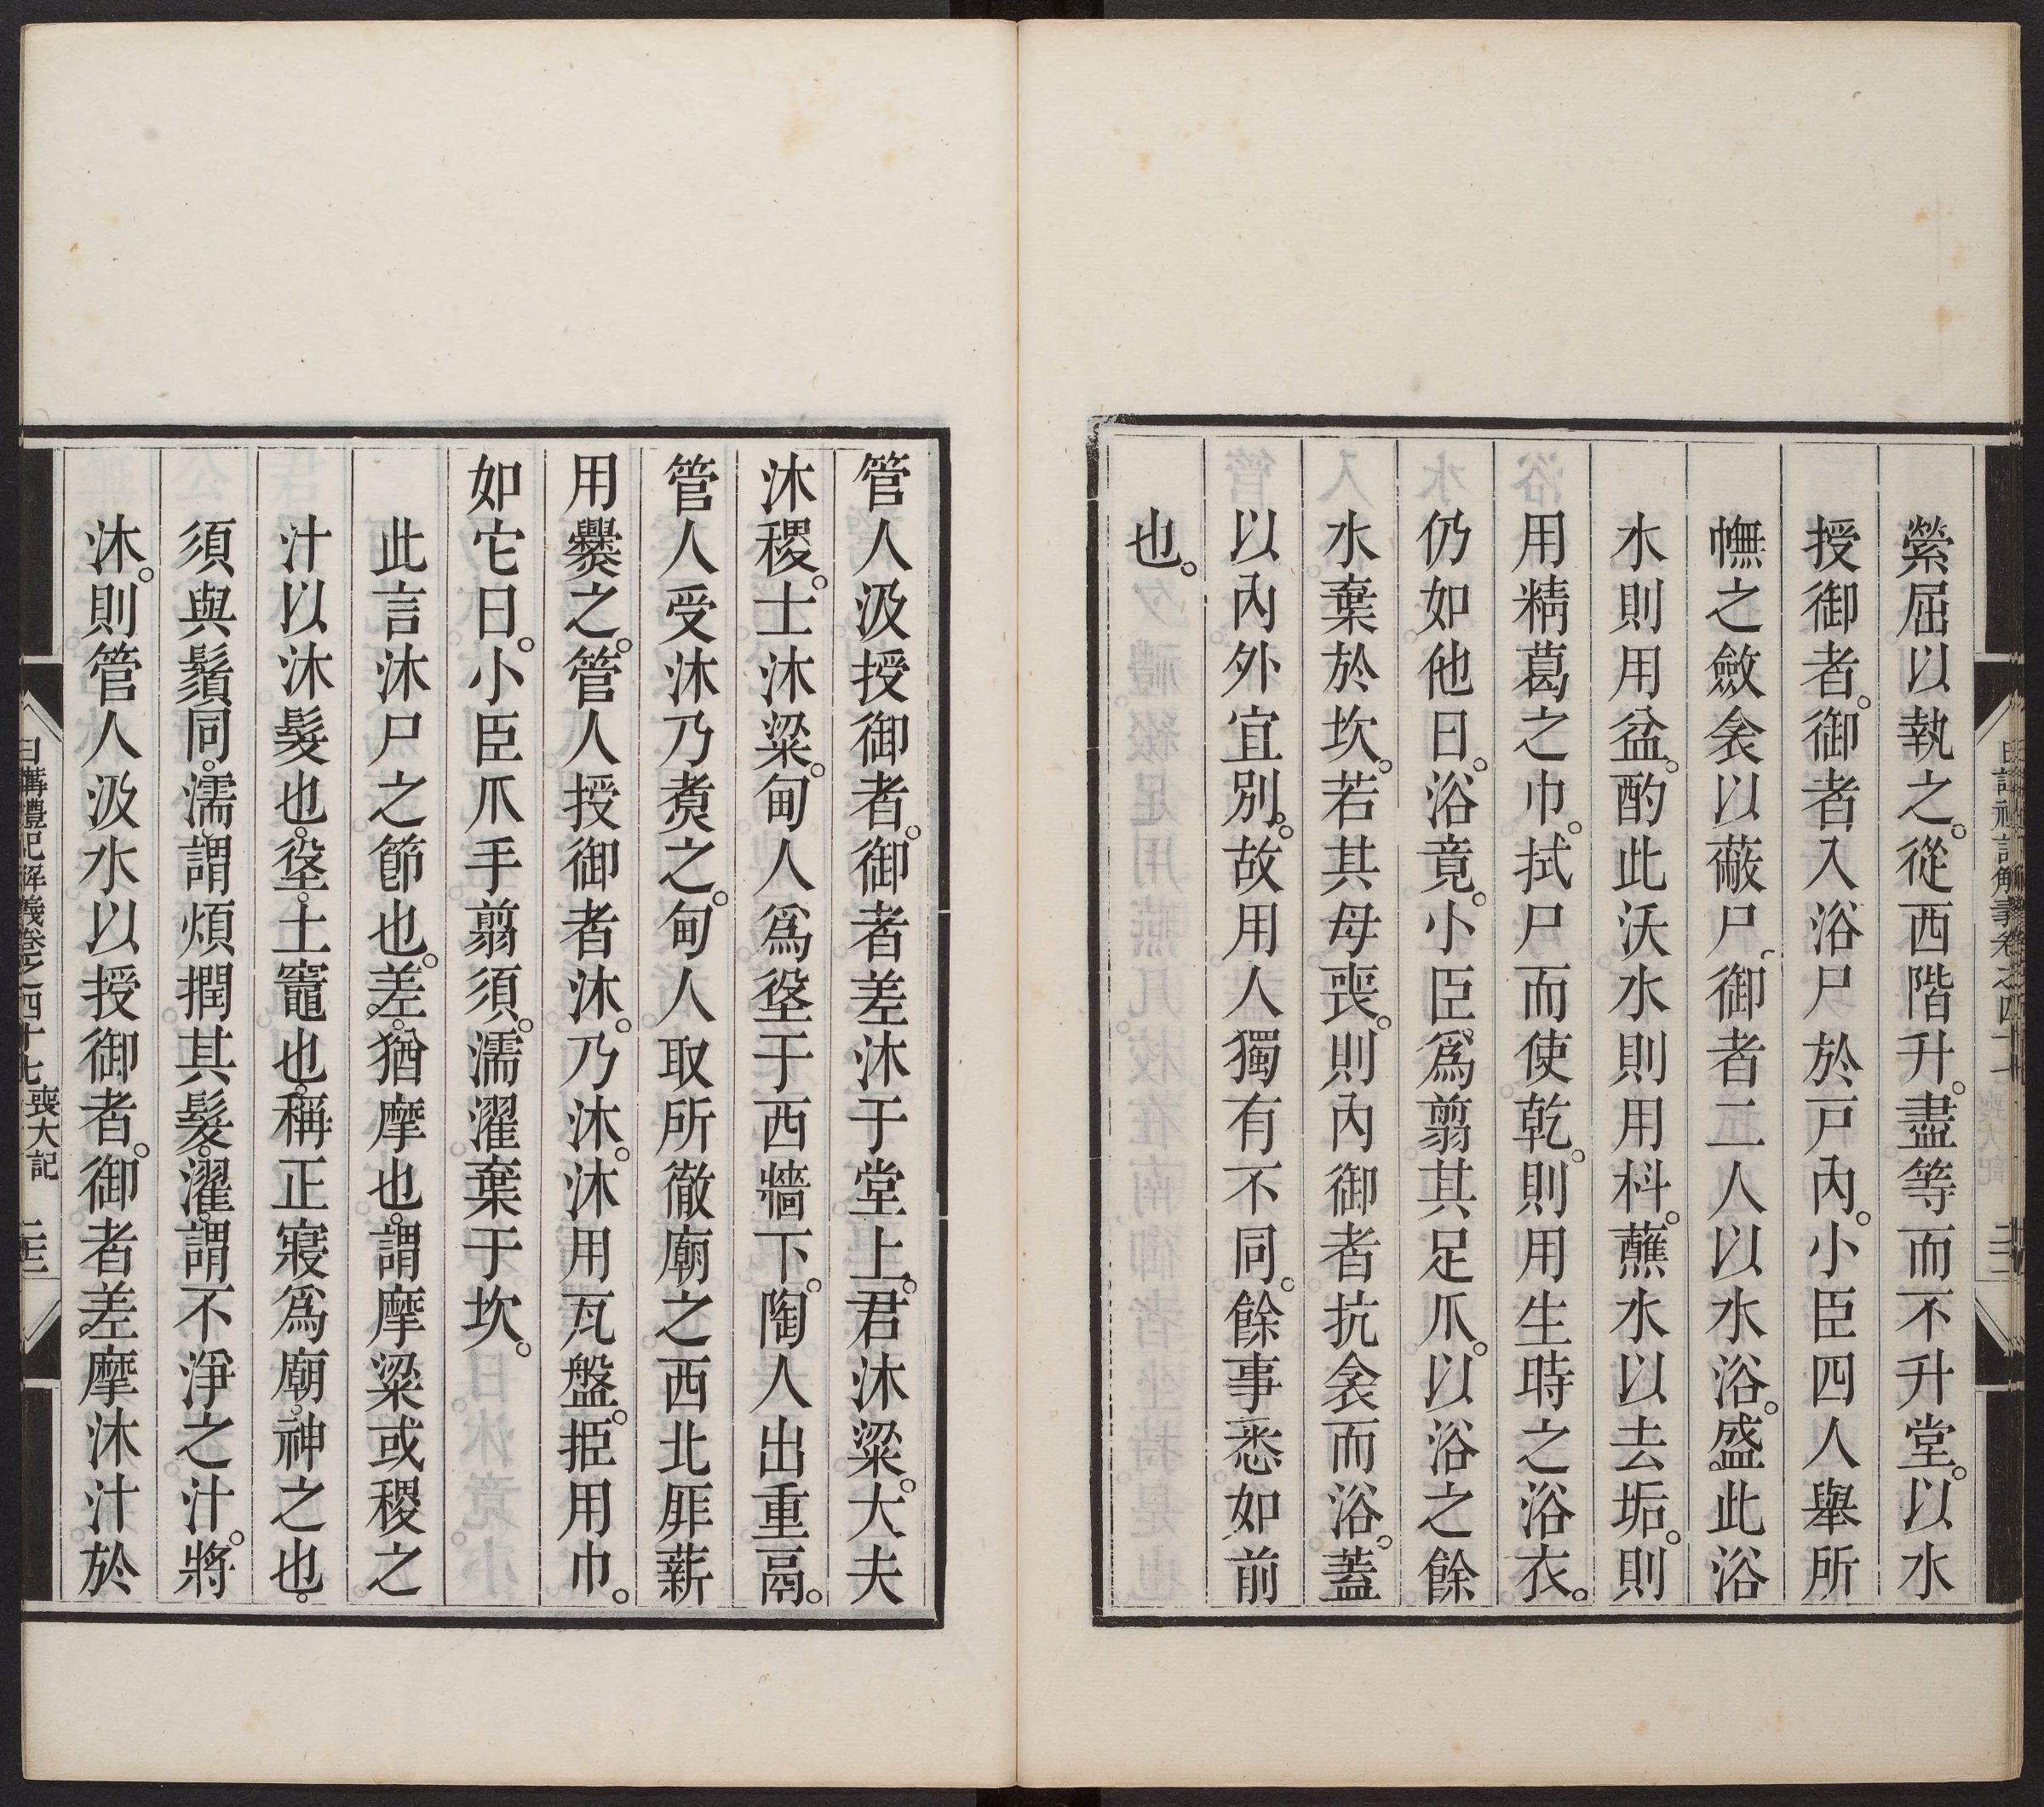 縈屈以執之。從西階升。盡等而不升堂。以水
授御者。御者入浴尸於戸內。小臣四人舉所
幠之斂衾以蔽尸、御者二人以水浴。盛此浴
水則用盆。酌此沃水則用枓。蘸水以去垢。則
用精葛之巾。拭尸而使乾。則用生時之浴衣。
仍如他日。浴竟。小臣爲翦其足爪。以浴之餘
水棄於坎。若其母喪。則內御者抗衾而浴。蓋
以內外宜別。故用人獨有不同。餘事悉如前
也。
管人汲授御者。御者差沐于堂上。君沐粱。大夫
沐稷。士沐粱。甸人爲垼于西牆下。陶人出重鬲。
管人受沐乃煑之。甸人取所徹廟之西北厞薪
用爨之。管人授御者沐。乃沐。沐用瓦盤。挋用巾。
如它日。小臣爪手翦須。濡濯棄于坎。
此言沐尸之節也。差。猶摩也。謂摩粱或稷之
汁以沐髮也。垼。土竈也。稱正寢爲廟。神之也。
須與鬚同。濡。謂煩撋其髮。濯。謂不淨之汁。將
沐。則管人汲水以授御者。御者差摩沐汁於
日講禮記解義卷之四十七 喪大記 二三